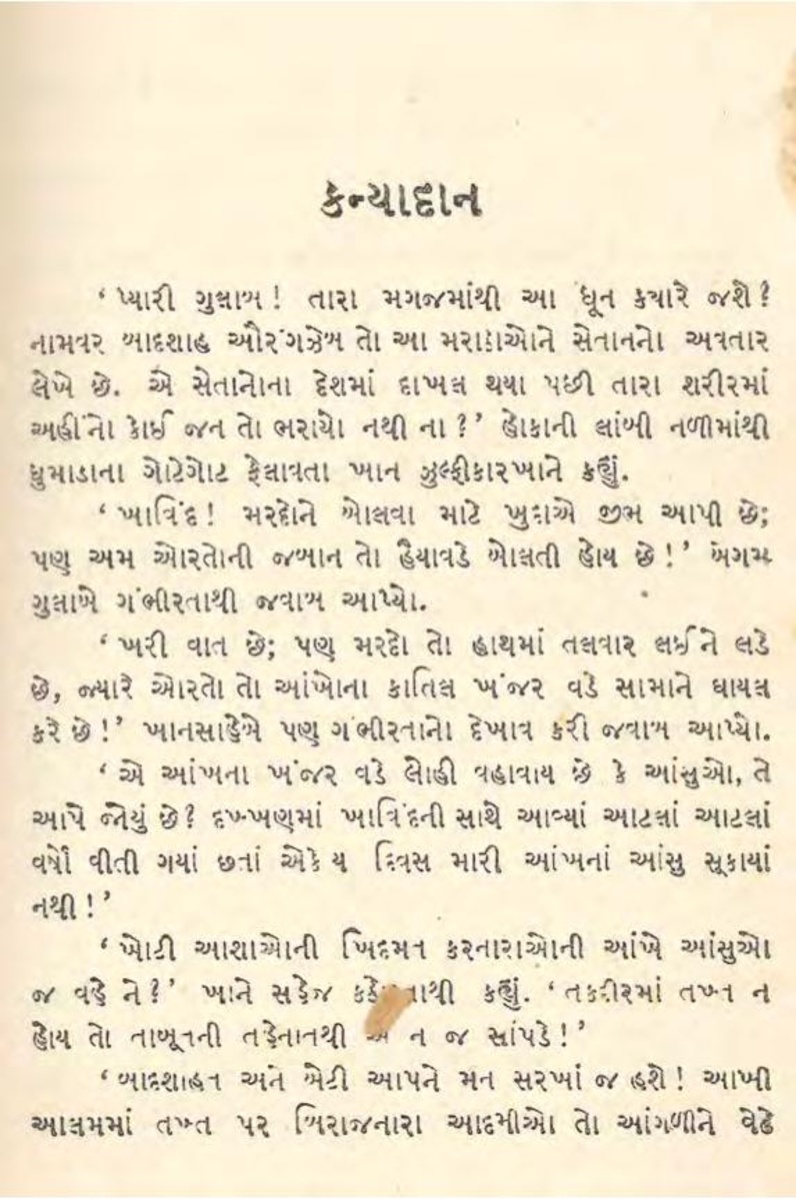 કન્યાદાન
‘પ્યારી ગુલાબ! તારા મગજમાંથી આ ધૂન ક્યારે જશે?
નામવર બાદશાહ ઔરંગઝેબ તો આ મરાઠાઓને સેતાનનો અવતાર
લેખે છે. એ સેતાનોના દેશમાં દાખલ થયા પછી તારા શરીરમાં
અહીંનો કોઈ જન તો ભરાયો નથી ના?’ હોકાની લાંબી નળીમાંથી
ધુમાડાના ગોટેગોટ ફેલાવતા ખાન ઝુલ્ફીકારખાને કહ્યું.
‘ખાવિંદ! મરદોને બોલવા માટે ખુદાએ જીભ આપી છે;
પણ અમ ઓરતોની જબાન તો હૈયાવડે બોલતી હોય છે!’ બેગમ
ગુલાબે ગંભીરતાથી જવાબ આપ્યો.
‘ખરી વાત છે; પણ મરદો તો હાથમાં તલવાર લઈને લડે
છે, જ્યારે ઓરતો તો આંખોના કાતિલ ખંજર વડે સામાને ઘાયલ
કરે છે!’ ખાનસાહેબે પણ ગંભીરતાનો દેખાવ કરી જવાબ આપ્યો.
‘એ આંખના ખંજર વડે લોહી વહાવાય છે કે આંસુઓ, તે
આપે જોયું છે? દખ્ખણમાં ખાવિંદની સાથે આવ્યાં આટલાં આટલાં
વર્ષો વીતી ગયાં છતાં એકે ય દિવસ મારી આંખનાં આંસુ સૂકાયાં
નથી!’
‘ખોટી આશાઓની ખિદમત કરનારાઓની આંખે આંસુઓ
જ વહે ને?’ ખાને સહેજ કહ્યું. ‘તકદીરમાં તખ્ત ન
હોય તો તાબૂતની તહેનાતથી એ ન જ સાંપડે!’
‘બાદશાહત અને બેટી આપને મન સરખાં જ હશે! આખી
આલમમાં તખ્ત પર બિરાજનારા આદમીઓ તો આંગળીને વેઢે